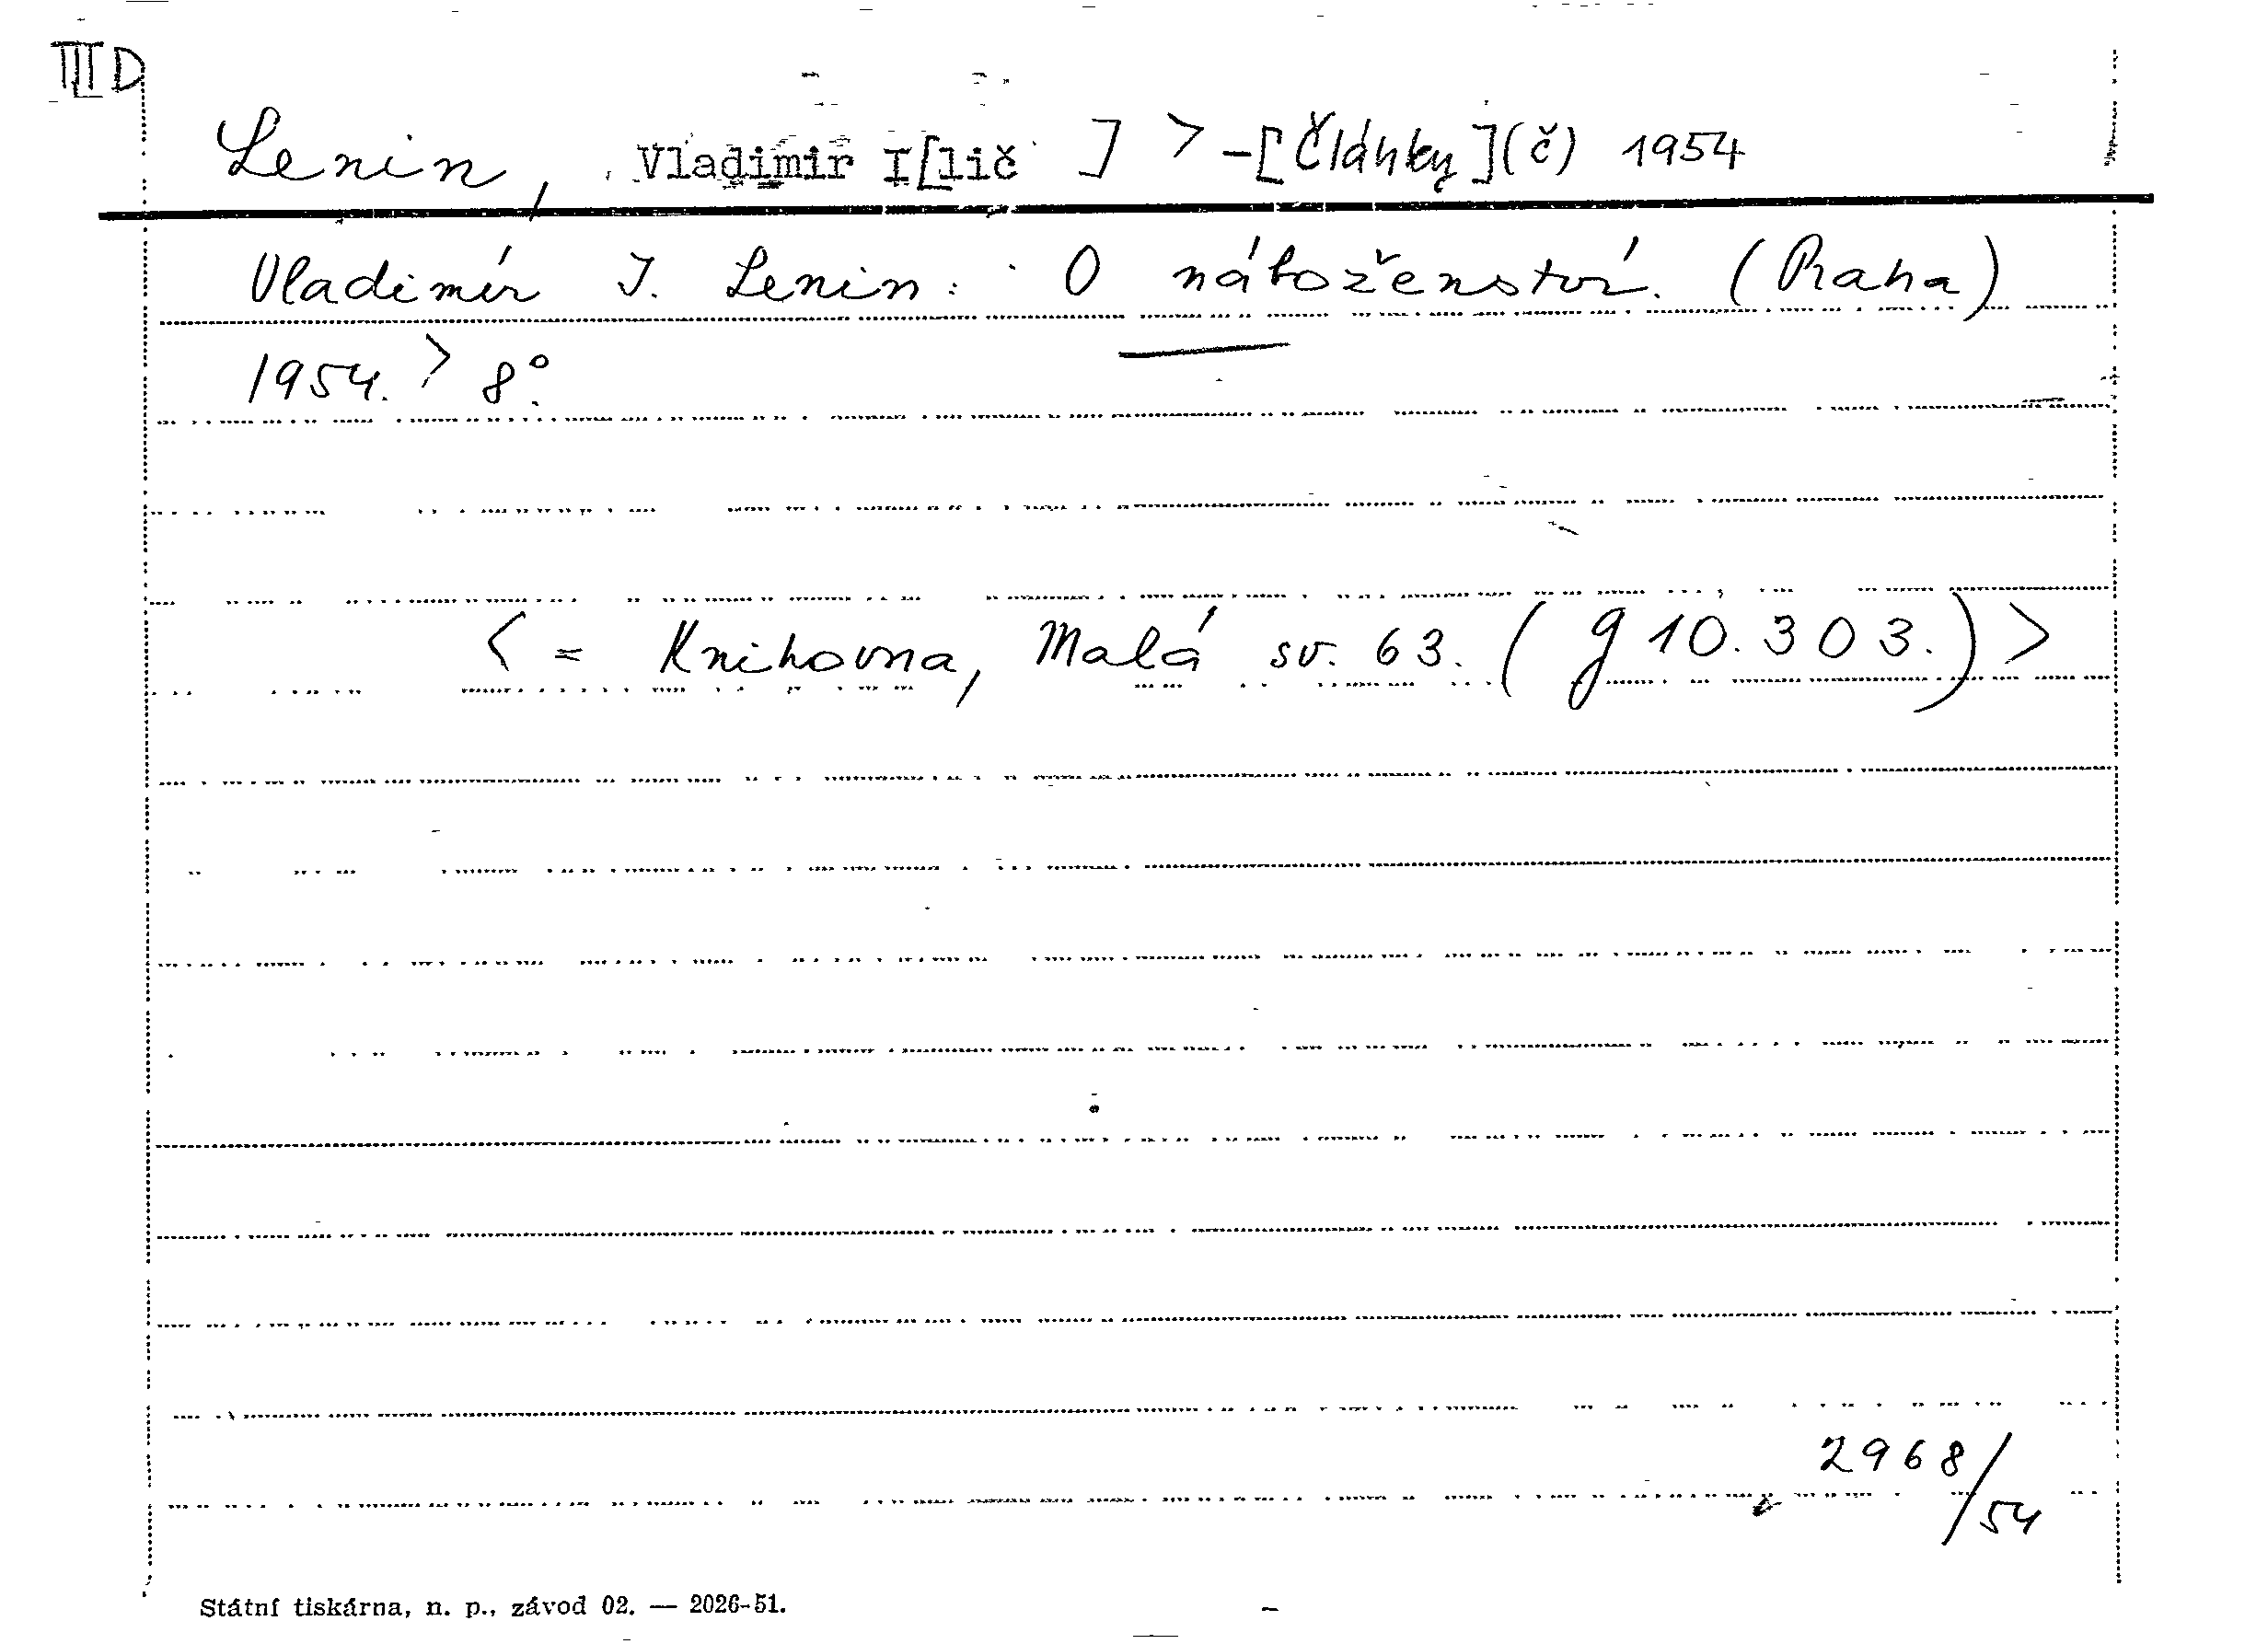 III D
Lenin, Vladimir I[lič ] > -[Články](č) 1954
Vladimír I. Lenin: O náboženství. (Praha)
1954. > 8°.
< = Knihovna, Malá sv. 63. ( g 10.303.) >
2968/54
Státní tiskárna, n. p., závod 02. — 2026-51.